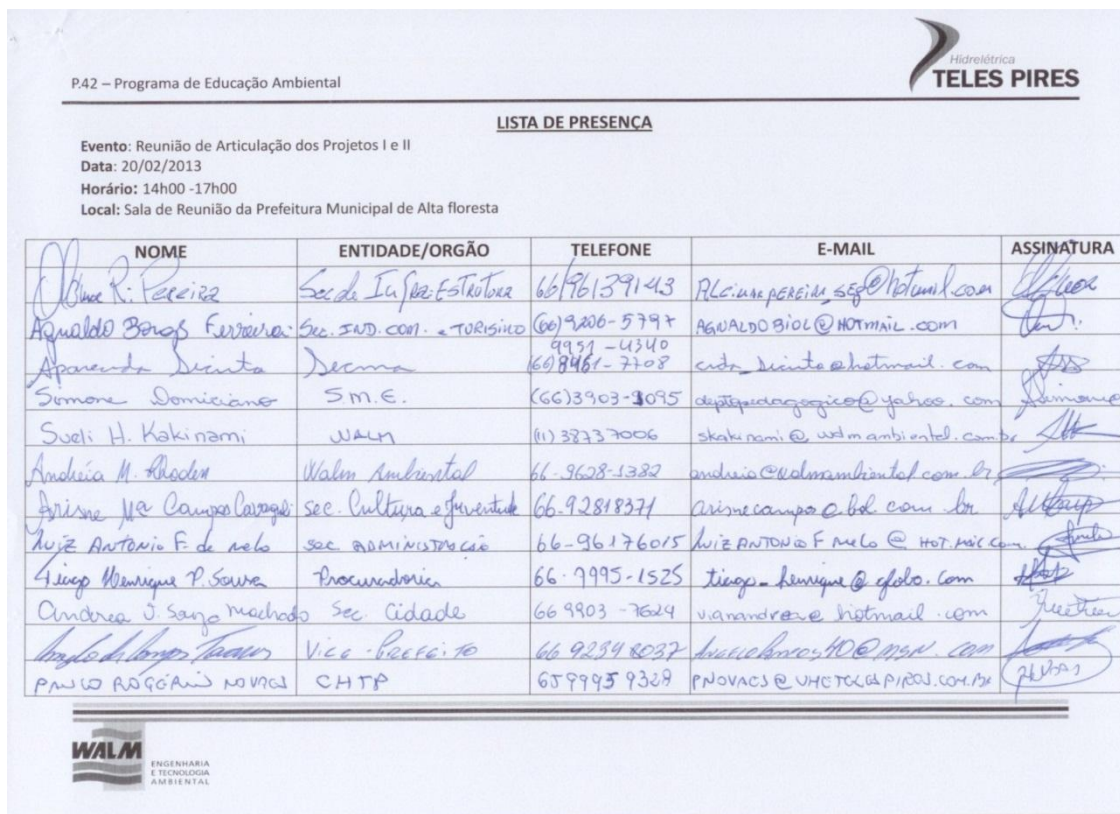 Hidrelétrica
TELES PIRES
P.42 – Programa de Educação Ambiental
LISTA DE PRESENÇA
Evento: Reunião de Articulação dos Projetos I e II
Data: 20/02/2013
Horário: 14h00 -17h00
Local: Sala de Reunião da Prefeitura Municipal de Alta floresta
NOME ENTIDADE/ORGÃO TELEFONE E-MAIL ASSINATURA
R. Pereira Sec de InfraEstrutura 66/96139143
Agnaldo Borges Ferreira Sec. IND. COM. e TURISMO (66)9206-5797 AGNALDOBIOL@HOTMAIL.COM
9951-4340
Aparecida Sicuta Secma (66)8461-7708 cida_sicuto@hotmail.com
Simone Domiciano S.M.E. (66)3903-1095 deptopedagogico@yahoo.com Simone
Sueli H. Kakinami WALM (11) 38737006 skakinami@walmambiental.com.br
Andréia M. Rhoden Walm Ambiental 66-9628-1382 andreia@walmambiental.com.br
Arisne Mª Campos Sec. Cultura e Juventude 66-92818371 arisnecampo@bol.com.br
Luiz ANTONIO F. de melo sec. ADMINISTRAÇÃO 66-96176015 LuizANTONIOFmelo@HOTMAIL.com
Tiago Henrique P. Sousa Procuradoria 66-9995-1525 tiago-henrique@globo.com
Andrea J. Machado Sec. Cidade 66 9903-7624 hotmail.com
Vice-PREFEITO 66 92348037
PAULO ROGÉRIO NOVAES CHTP 6599959328 PNOVAES@UHETELESPIRES.COM.BR
WALM
ENGENHARIA
E TECNOLOGIA
AMBIENTAL